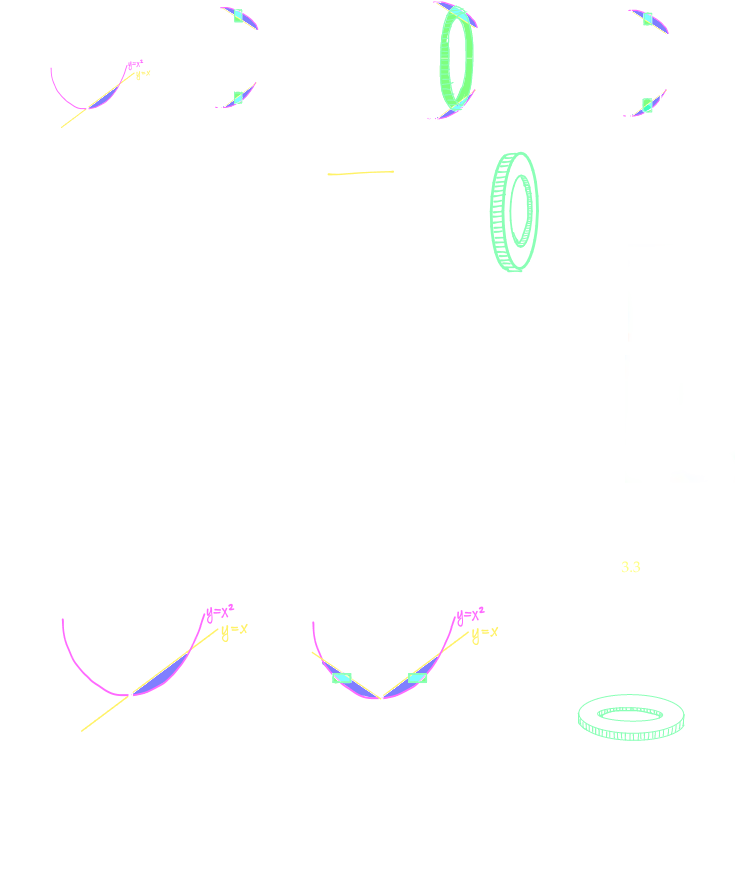 y=x²
y=x
3.3
y=x²
y=x²
y=x
y=x